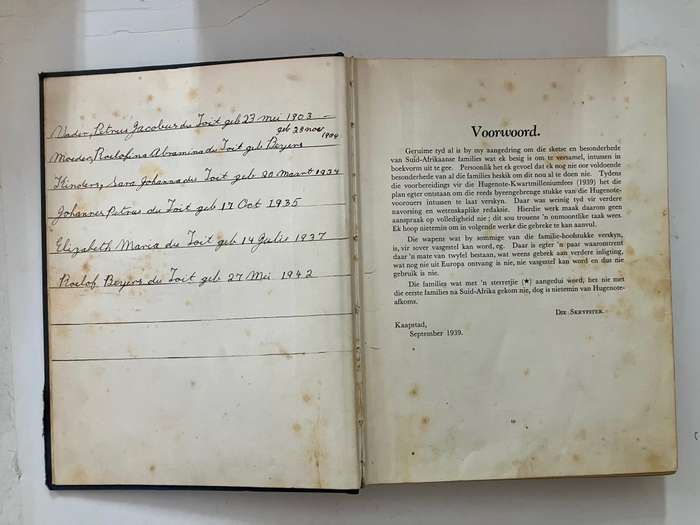 Vader, Petrus Jacobus du Toit geb 23 Mei 1903 –
geb 28 nov 1904
Moeder, Roelofina Abramina du Toit geb Beyers
Kinders, Sara Johanna du Toit geb 20 Maart 1934
Johannes Petrus du Toit geb 17 Oct 1935
Elizabeth Maria du Toit geb 14 Julie 1937
Roelof Beyers du Toit geb 27 Mei 1942
Voorwoord.
Geruime tyd al is by my aangedring om die sketse en besonderhede
van Suid-Afrikaanse families wat ek besig is om te versamel, intussen in
boekvorm uit te gee. Persoonlik het ek gevoel dat ek nog nie oor voldoende
besonderhede van al die families beskik om dit nou al te doen nie. Tydens
die voorbereidings vir die Hugenote-Kwartmilleniumfees (1939) het die
plan egter ontstaan om die reeds byeengebronge stukke van die Hugenote-
voorouers intussen te laat verskyn. Daar was weinig tyd vir verdere
navorsing en wetenskaplike redaksie. Hierdie werk maak daarom geen
aanspraak op volledigheid nie; dit sou trouens 'n onmoontlike taak wees.
Ek hoop nietemin om in volgende werke die gebreke te kan aanvul.
Die wapens wat by sommige van die familie-hoofstukke verskyn,
is, vir sover vasgestel kan word, eg. Daar is egter 'n paar waaromtrent
daar 'n mate van twyfel bestaan, wat weens gebrek aan verdere inligting,
wat nog nie uit Europa ontvang is nie, nie vasgestel kan word en dus nie
gebruik is nie.
Die families wat met 'n sterretjie (★) aangedui word, het nie met
die eerste families na Suid-Afrika gekom nie, dog is nietemin van Hugenote-
afkoms.
Die Skryfster.
Kaapstad,
September 1939.